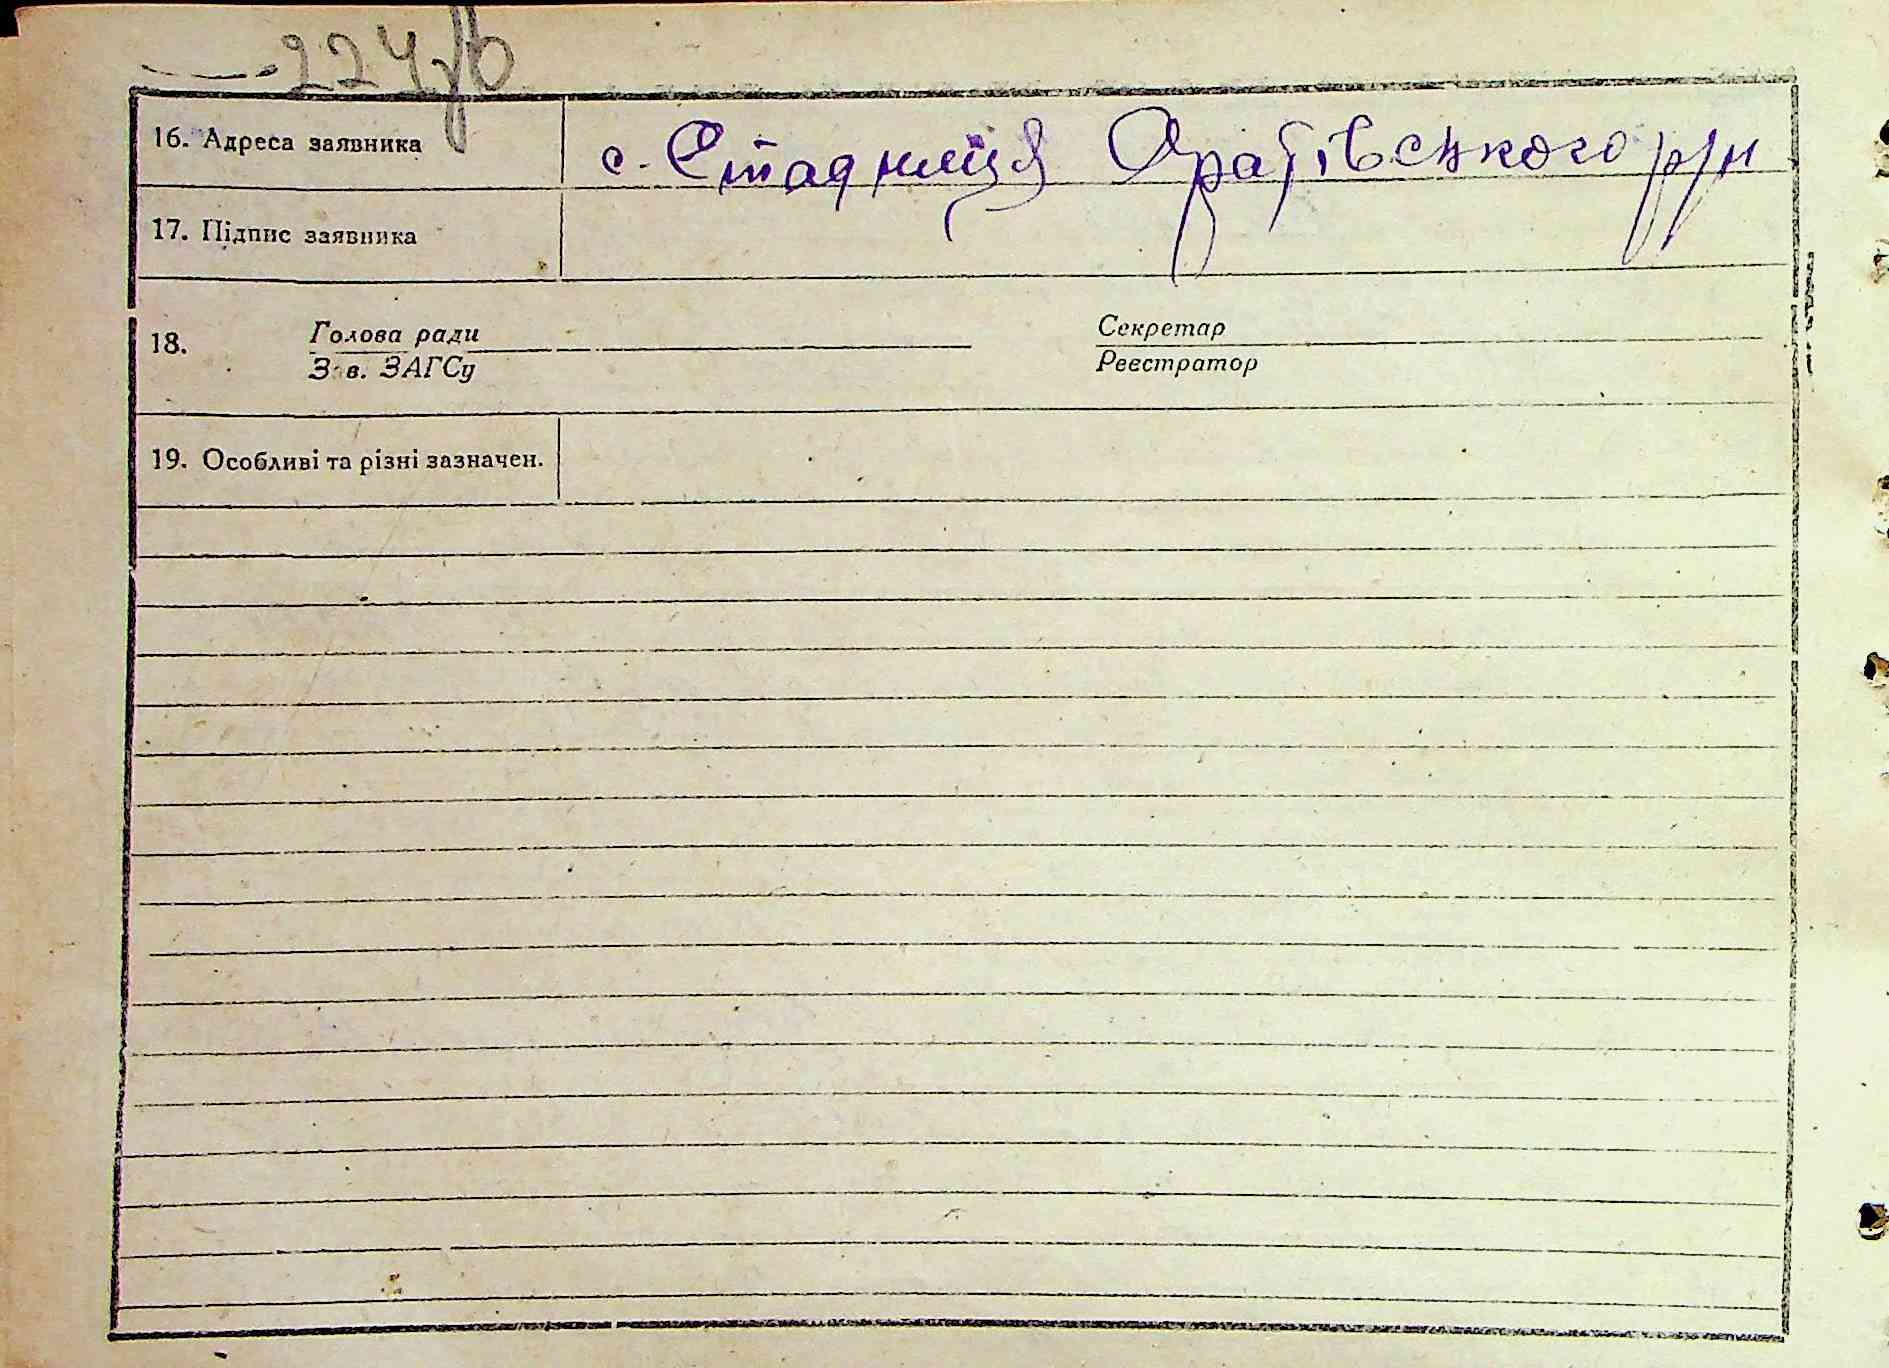 224зв
16. Адреса заявника с. Стадниця Оратівського р/н
17. Підпис заявника
18. Голова ради Секретар
Зав. ЗАГСу Реєстратор
19. Особливі та різні зазначен.